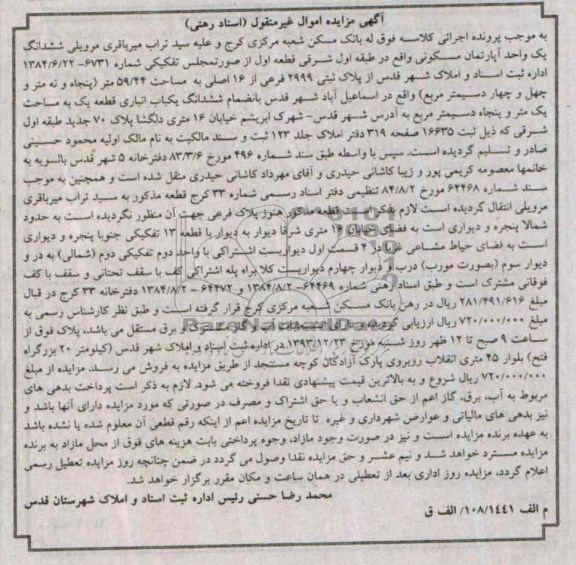 آگهی مزایده اموال غیرمنقول (اسناد رهنی)
به موجب پرونده اجرائی کلاسه فوق له بانک مسکن شعبه مرکزی کرج و علیه سید تراب میرباقری مرویلی ششدانگ
یک واحد آپارتمان مسکونی واقع در طبقه اول شرقی قطعه اول از صورتمجلس تفکیکی شماره ۶۷۳۱- ۱۳۸۴/۶/۲۲
اداره ثبت اسناد و املاک شهر قدس از پلاک ثبتی ۲۹۹۹ فرعی از ۱۶ اصلی به مساحت ۵۹/۴۴ متر (پنجاه و نه متر و
چهل و چهار دسیمتر مربع) واقع در اسماعیل آباد شهر قدس بانضمام ششدانگ یکباب انباری قطعه یک به مساحت
یک متر و پنجاه دسیمتر مربع به آدرس شهر قدس- شهرک ابریشم خیابان ۱۶ متری دلگشا پلاک ۷۰ جدید طبقه اول
شرقی که ذیل ثبت ۱۶۶۳۵ صفحه ۳۱۹ دفتر املاک جلد ۱۲۳ ثبت و سند مالکیت به نام مالک اولیه محمود حسینی
صادر و تسلیم گردیده است. سپس با واسطه طبق سند شماره ۴۹۶ مورخ ۸۳/۳/۶ دفترخانه ۵ شهر قدس بالسویه به
خانمها معصومه کریمی پور و زیبا کاشانی حیدری و آقای مهرداد کاشانی حیدری منتقل شده است و همچنین به موجب
سند شماره ۶۴۴۶۸ مورخ ۸۴/۸/۲ تنظیمی دفتر اسناد رسمی شماره ۳۳ کرج قطعه مذکور به سید تراب میرباقری
مرویلی انتقال گردیده است لازم بذکر است قطعه مذکور هنوز پلاک فرعی جهت آن منظور نگردیده است به حدود
شمالا پنجره و دیواری است به فضای خیابان ۱۶ متری شرقا دیوار به دیوار با قطعه ۱۳ تفکیکی جنوبا پنجره و دیواری
است به فضای حیاط مشاعی غربا در ۴ قسمت اول دیواریست اشتراکی با واحد دوم تفکیکی دوم (شمالی) به در و
دیوار سوم (بصورت مورب) درب و دیوار چهارم دیواریست کلا براه پله اشتراکی کف با سقف تحتانی و سقف با کف
فوقانی مشترک است و طبق اسناد رهنی شماره ۶۴۴۶۹- ۱۳۸۴/۸/۲ و ۶۴۴۷۲ - ۱۳۸۴/۸/۲ دفترخانه ۳۳ کرج در قبال
مبلغ ۲۸۱/۴۹۱/۶۱۶ ریال در رهن بانک مسکن شعبه مرکزی کرج قرار گرفته است و طبق نظر کارشناس رسمی به
مبلغ ۷۲۰/۰۰۰/۰۰۰ ریال ارزیابی گردیده برق مستقل می باشد، پلاک فوق از
ساعت ۹ صبح تا ۱۲ ظهر روز شنبه مورخ ۱۳۹۳/۱۲/۲۳ در اداره ثبت اسناد و املاک شهر قدس (کیلومتر ۲۰ بزرگراه
فتح) بلوار ۴۵ متری انقلاب روبروی پارک آزادگان کوچه مستنجد از طریق مزایده به فروش می رسد. مزایده از مبلغ
۷۲۰/۰۰۰/۰۰۰ ریال شروع و به بالاترین قیمت پیشنهادی نقدا فروخته می شود. لازم به ذکر است پرداخت بدهی های
مربوط به آب، برق، گاز اعم از حق انشعاب و یا حق اشتراک و مصرف در صورتی که مورد مزایده دارای آنها باشد و
نیز بدهی های مالیاتی و عوارض شهرداری و غیره تا تاریخ مزایده اعم از اینکه رقم قطعی آن معلوم شده یا نشده باشد
به عهده برنده مزایده است و نیز در صورت وجود مازاد، وجوه پرداختی بابت هزینه های فوق از محل مازاد به برنده
مزایده مسترد خواهد شد و نیم عشر و حق مزایده نقدا وصول می گردد در ضمن چنانچه روز مزایده تعطیل رسمی
اعلام گردد، مزایده روز اداری بعد از تعطیلی در همان ساعت و مکان مقرر برگزار خواهد شد.
محمد رضا حسنی رئیس اداره ثبت اسناد و املاک شهرستان قدس
م الف ۱۰۸/۱۴۴۱/ الف ق